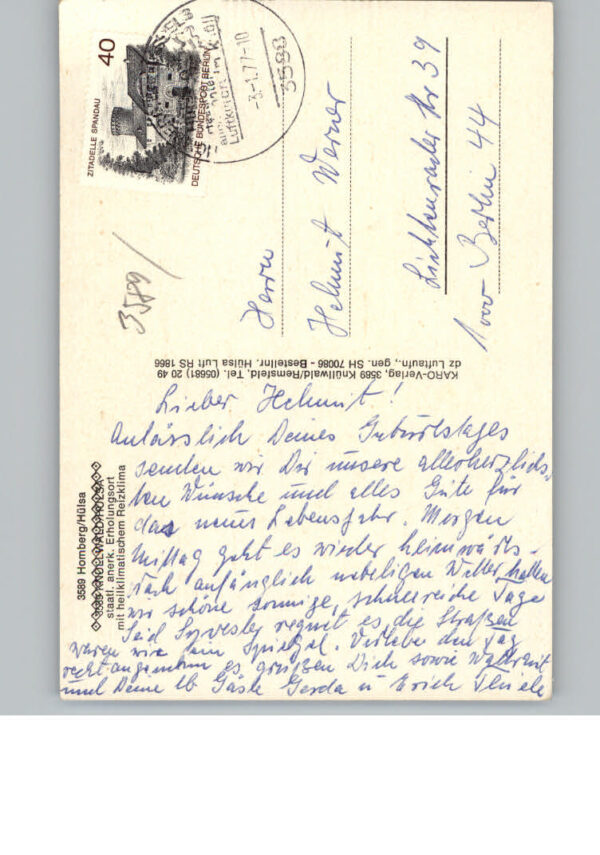 40
ZITADELLE SPANDAU
DEUTSCHE BUNDESPOST BERLIN
Luftkurort
-3.-1.77-10
3588
3589
Herrn
Helmut Werner
Lichtenrader Str 39
1000 Berlin 44
KARO-Verlag, 3589 Knüllwald/Remsfeld, Tel. (05681) 20 49
dz Luftaufn., gen. SH 70086 - Bestellnr. Hülsa Luft RS 1866
3589 Homberg/Hülsa
staatl. anerk. Erholungsort
mit heilklimatischem Reizklima
Lieber Helmut!
Anlässlich Deines Geburtstages
senden wir Dir unsere allerherzlichs-
ten Wünsche und alles Gute für
das neue Lebensjahr. Morgen
Mittag geht es wieder heimwärts.
Nach anfänglich nebeligen Wetter hatten
wir schöne sonnige, schneereiche Tage
Seid Sylvester regnet es, die Straßen
waren wie ein Spiegel. Verlebe den Tag
recht angenehm es grüßen Dich sowie Waltraut
und Deine lb Gäste Gerda u Erich Thiele